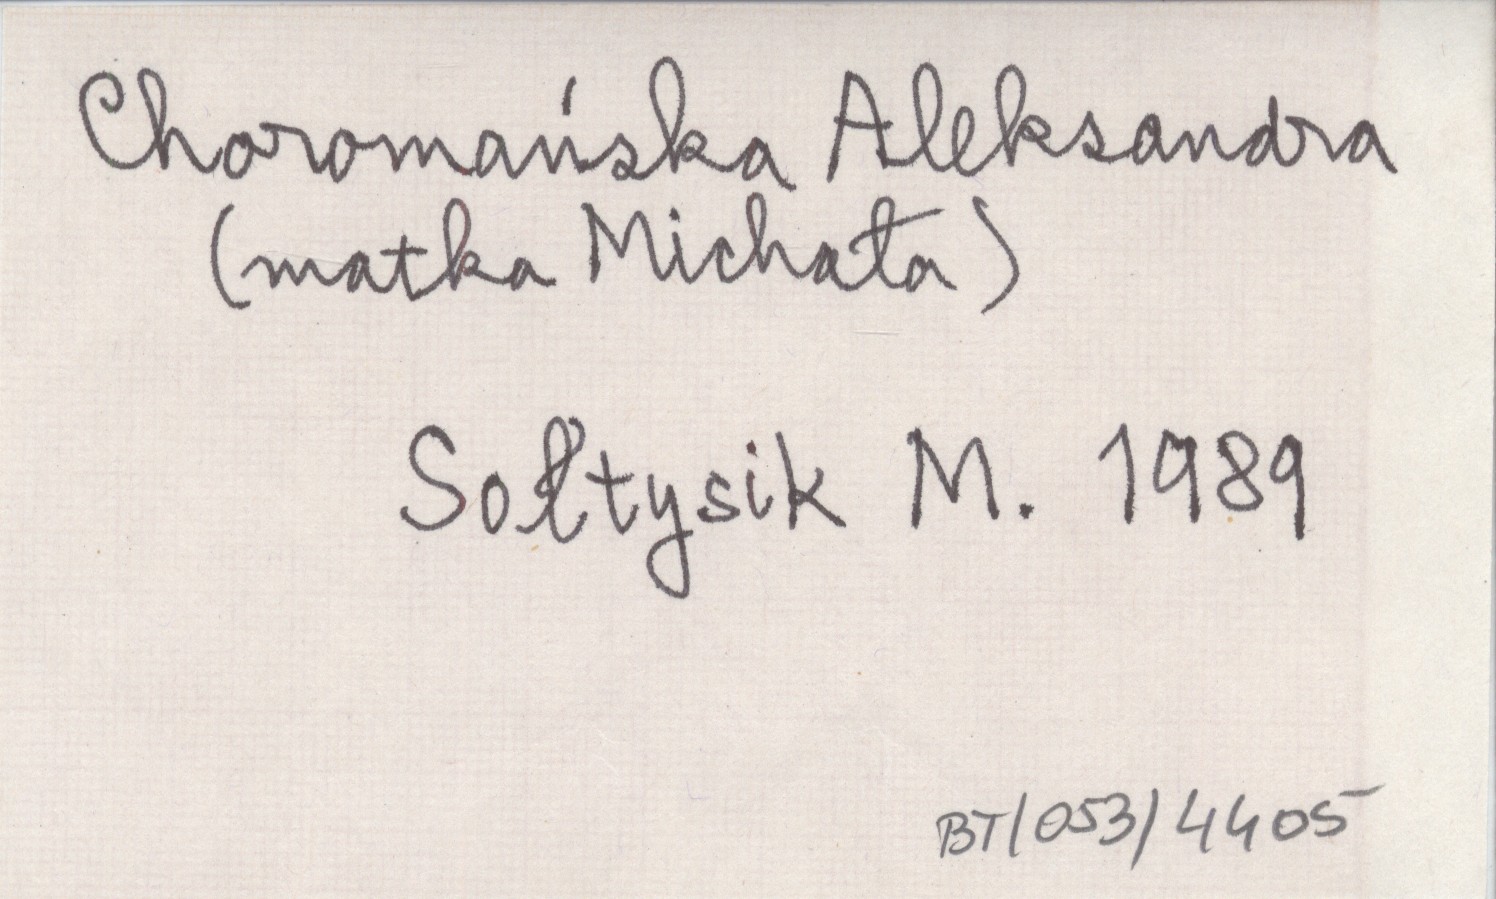 Choromańska Aleksandra
(matka Michała)
Sołtysik M. 1989
BT/053/4405